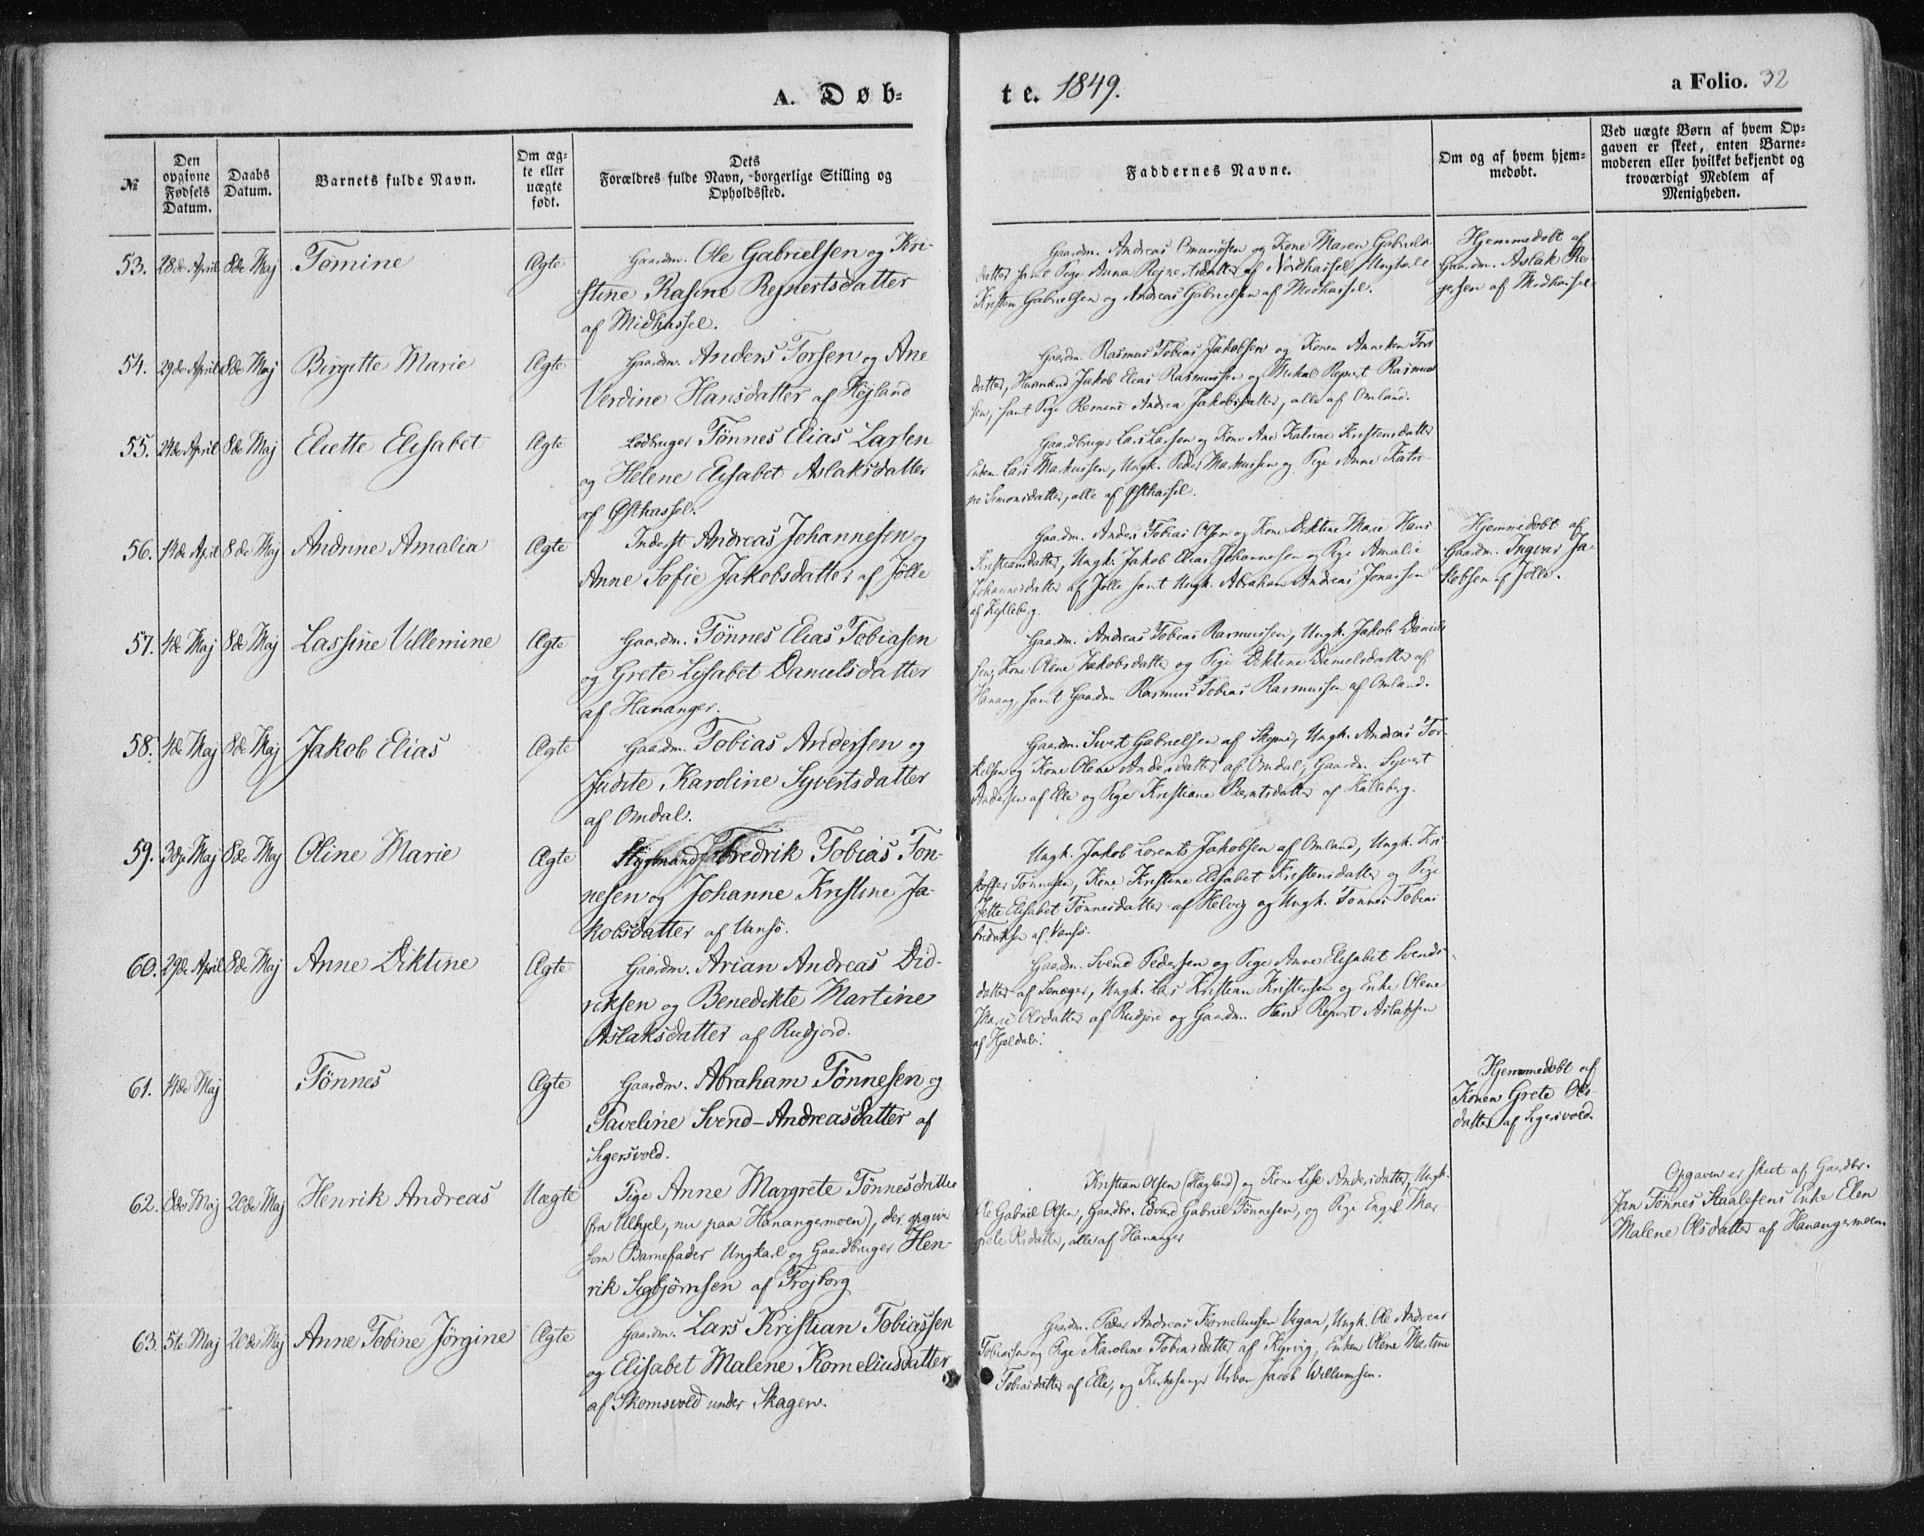 A. Døb-
te. 1849.
a Folio. 32
№
Den opgivne Fødsels Datum.
Daabs Datum.
Barnets fulde Navn.
Om ægte eller uægte født.
Dets Forældres fulde Navn, borgerlige Stilling og Opholdssted.
Faddernes Navne.
Om og af hvem hjemmedøbt.
Ved uægte Børn af hvem Opgaven er skeet, enten Barnemoderen eller hvilket bekjendt og troværdigt Medlem af Menigheden.
53. 28de April 8de Maj Tomine Ægte Gaardm. Ole Gabrielsen og Kri-
stine Rasine Rejnertsdatter
af Midhassel.
Gaardm. Andreas Omundsen og Kone Maren Gabriels
datter samt Pige Anna Rejnertsdatter af Nordhassel, Ungkarle
Kristen Gabrielsen og Andreas Gabrielsen af Midhassel.
Hjemmedøbt af
Gaardm. Aslak Re-
jersen af Midhassel
54. 29de April 8de Maj Birgitte Marie Ægte Gaardm. Anders Torsen og Ane
Verdine Hansdatter af Højland
Gaardm. Rasmus Tobias Jakobsen og Konen Anneken Tors
datter, Husmænd Jakob Elias Rasmussen og Mikal Rejnert Rasmus
sen, samt Pige Andrea Jakobsdatter, alle af Omland.
55. 24de April 8de Maj Eliette Elisabet Ægte Lodbruger Tønnes Elias Larsen
og Helene Elisabet Aslaksdatter
af Østhassel.
Gaardbruger Lars Larsen og Kone Ane Katrine Kristensdatter
Enkem. Lars Markussen, Ungk. Peder Markussen og Pige Anne Katri-
ne Simonsdatter, alle af Østhassel.
56. 14de April 8de Maj Andrine Amalia Ægte Inderst Andreas Johannesen og
Anne Sofie Jakobsdatter af Jølle
Gaardm. Anders Tobias Olsen og Kone Diktine Marie Hans
Kristiansdatter, Ungk. Jakob Elias Johannesen og Pige Amalie
Johannesdatter af Jølle samt Ungk. Abraham Andreas Jonassen
af Kjelleberg.
Hjemmedøbt af
Gaardm. Ingvar Ja-
kobsen af Jølle.
57. 4de Maj 8de Maj Lassine Villemine Ægte Gaardm. Tønnes Elias Tobiasen
og Grete Lisabet Danielsdatter
af Hananger.
Gaardm. Andreas Tobias Rasmussen, Ungk. Jakob Daniels
sen, Kone Olene Jakobsdatter og Pige Diktine Danielsdatter af
Hanang, samt Gaardm. Rasmus Tobias Rasmussen af Omland.
58. 4de Maj 8de Maj Jakob Elias Ægte Gaardm. Tobias Andersen og
Judite Karoline Syvertsdatter
af Omdal.
Gaardm. Sivert Gabrielsen af Skeime, Ungk. Andreas Tor-
kelsen og Kone Olene Andersdatter af Omdal, Gaardm. Syvert
Andersen af Elle og Pige Kristiane Berntsdatter af Kalleberg.
59. 3dje Maj 8de Maj Oline Marie Ægte Fredrik Tobias Ton-
nesen og Johanne Kristine Ja-
kobsdatter af Vansø.
Ungk. Jakob Lorents Jakobsen af Omland, Ungk. Kri
stoffer Tønnesen, Kone Kristine Elisabet Kristensdatter og Pige
Jette Elisabet Tønnesdatter af Helvig og Ungk. Tønnes Tobias
Fredriksen af Vansø.
60. 29de April 8de Maj Anne Diktine Ægte Gaardm. Arian Andreas Did-
riksen og Benedikte Martine
Aslaksdatter af Rudjord.
Gaardm. Svend Pedersen og Pige Anne Elisabet Svends
datter af Lenæger, Ungk. Lars Kristian Kristensen og Enke Olene
Marie Olsdatter af Rudjord og Gaardm. Hans Rejnert Aslaksen
af Hjeldal.
61. 14de Maj Tønnes Ægte Gaardm. Abraham Tønnesen og
Paveline Svend-Andreasdatter af
Sigersvold.
Hjemmedøbt af
Konen Grete Ols-
datter af Sigersvold.
62. 8de Maj 20de Maj Henrik Andreas Uægte Pige Anne Margrete Tønnesdatter
(fra Ulhjel, nu paa Hanangermoen), der opgiver
som Barnefader Ungkarl og Gaardbruger Hen-
rik Sigbjørnsen af Trojborg
Kristian Olsen (Høgland) og Kone Lise Andersdatter, Ungk.
Ole Gabriel Olsen, Gaardbr. Edvard Gabriel Tønnesen, og Pige Engel Mar-
grete Olsdatter, alle af Hananger
Opgaven er skeet af Gaardbr.
Jan Tønnes Staalesens Enke Elen
Malene Olsdatter af Hanangermoen
63. 5te Maj 20de Maj Anne Tobine Jörgine Ægte Gaardm. Lars Kristian Tobiassen
og Elisabet Malene Korneliusdatter
af Skomsvold under Skagen.
Gaardm. Peder Andreas Kornelius­sen Vigan, Ungk. Ole Andreas
Tobiassen og Pige Karoline Tobiasdatter af Kjørvig, Enken Olene Martine
Tobiasdatter af Elle, og Kirkesanger Urban Jacob Willumsen.